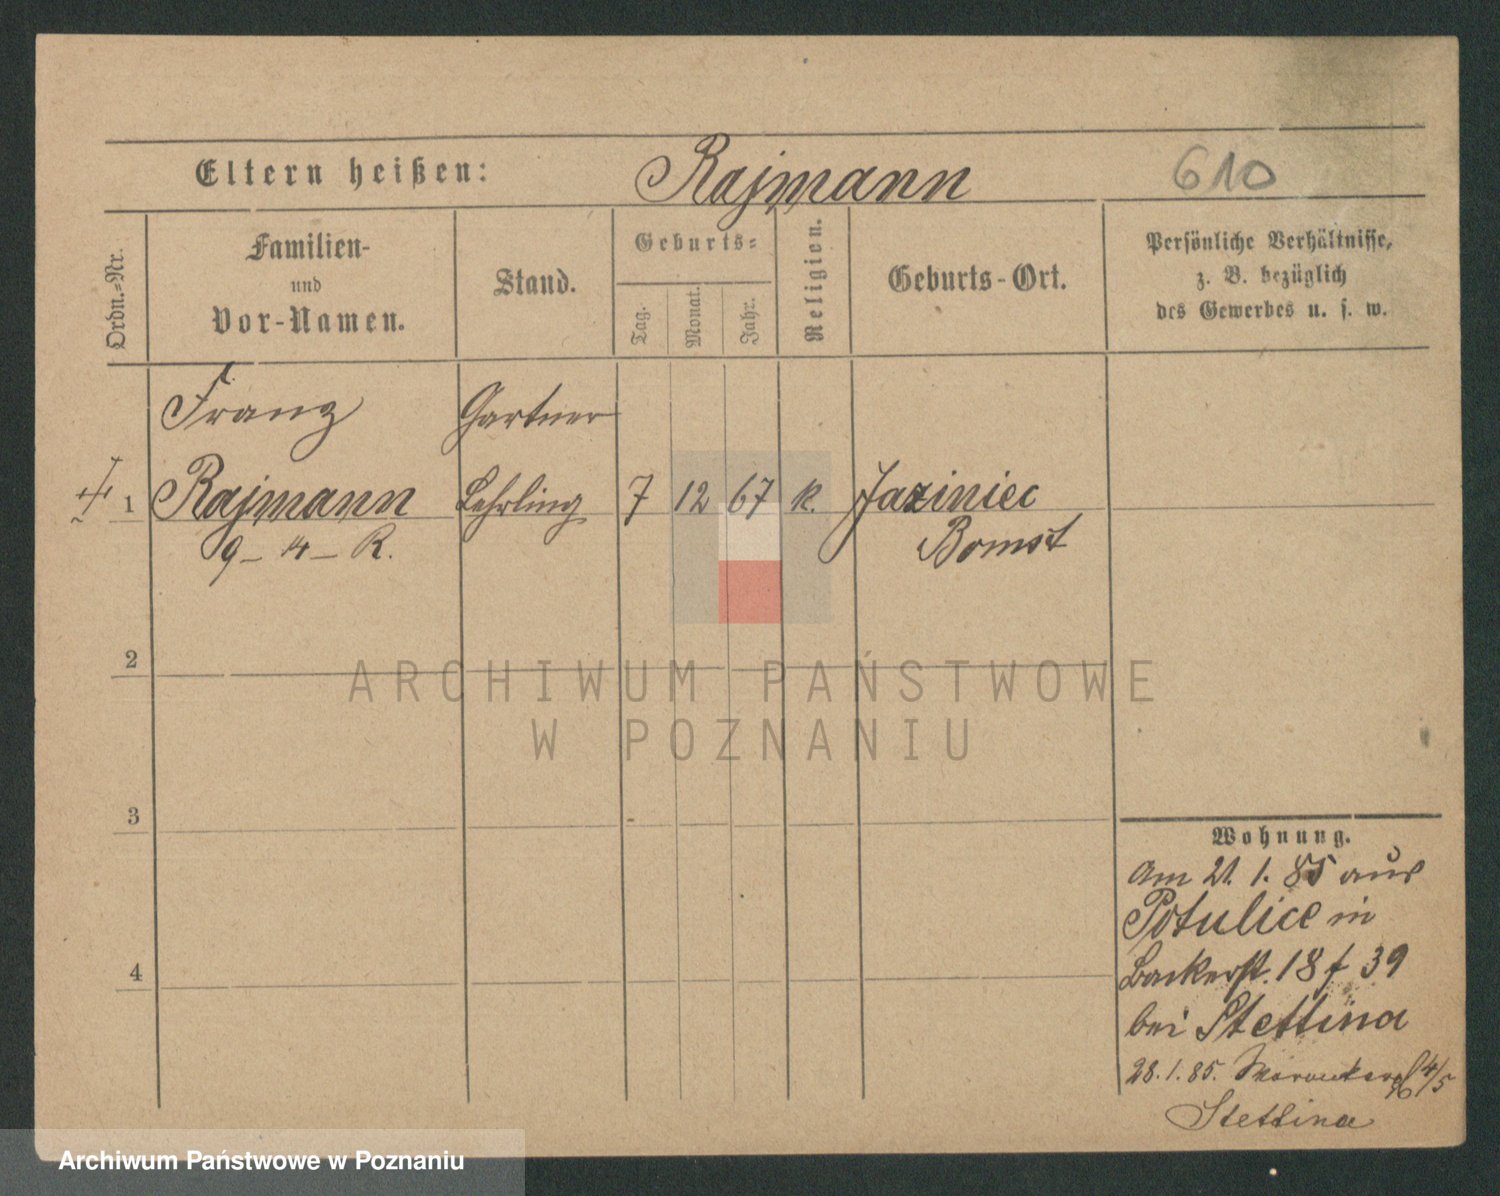 Eltern heißen: Rajmann 610
Ordn.=Nr.
Familien-
und
Vor-Namen.
Stand.
Geburts=
Tag.
Monat.
Jahr.
Religion.
Geburts-Ort.
Persönliche Verhältnisse,
z. B. bezüglich
des Gewerbes u. s. w.
Franz Gartner
1 Rajmann Lehrling 7 12 67 k. Jaziniec
9 - 14 - R. Bomst
2
ARCHIWUM PAŃSTWOWE
W POZNANIU
3
Wohnung.
Am 21. 1. 85 aus
Potulice in
Backerst. 18 f 39
4
bei Stettina
28. 1. 85. 4/5
Stettina
Archiwum Państwowe w Poznaniu